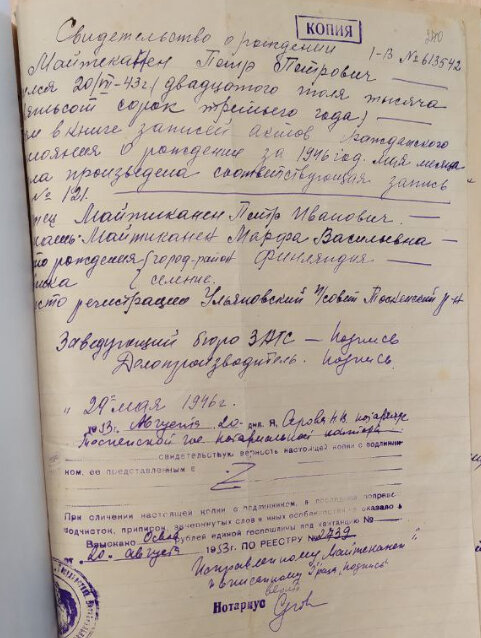 КОПИЯ
Свидетельство о рождении
I-В № 613542
Майтиканен Петр Петрович
лся 20/VII-43г/ двадцатого июля тысяча
ятьсот сорок третьего года/
ем в книге записей актов Гражданского
тояния о рождении за 1946 год мая месяца
ла произведена соответствующая запись
№ 121.
тец Майтиканен Петр Иванович.
Майтиканен Марфа Васильевна
то рождения город, район Финляндия
селение.
сто регистрации Ульяновский п/совет Тосненский р-н
Заведующий бюро ЗАГС — подпись
Делопроизводитель. подпись
"29" мая 1946г.
1953г. Августа 20 дня. Я, Серова Н.В. нотариус
Тосненской гос нотариальной конторы
свидетельствую верность настоящей копии с подлинни-
ком, ее представленным в
При сличении настоящей копии с подлинником, в последнем поправок,
подчисток, приписок, зачеркнутых слов и иных особенностей не оказалось
Взыскано рублей единой госпошлины под квитанцию №
20 августа 1953 г. ПО РЕЕСТРУ № 2739
Исправленному Майтиканен
и вписанному подпись
верить
Нотариус